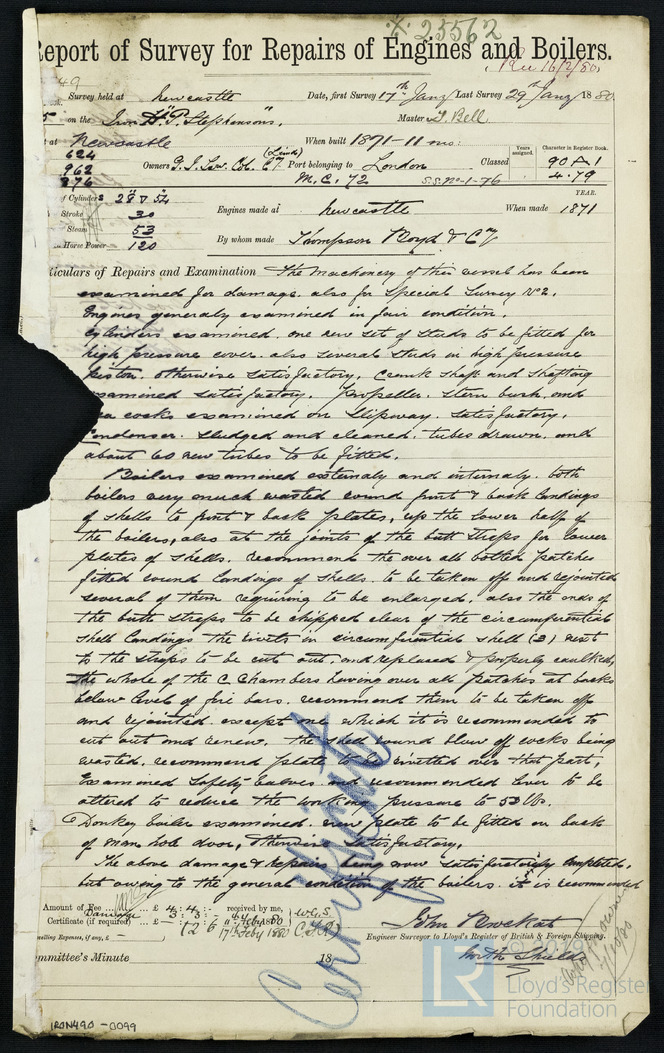 25562
Report of Survey for Repairs of Engines and Boilers.
Rec 16/2/80
49
Survey held at Newcastle Date, first Survey 17th Jany Last Survey 29th Jany 1880
on the Iron "P. Stephenson", Master Bell
at Newcastle When built 1871-11 mo:
624
962
876
Owners Coy (Limd) Port belonging to London Classed Years assigned. Character in Register Book. 90 A 1
M.C. 72 S.S. No 1-76 4.79
of Cylinders 28 & 54
Stroke 30
Steam 53
Horse Power 120
Engines made at Newcastle When made YEAR. 1871
By whom made Thompson Boyd & Coy
Particulars of Repairs and Examination The Machinery of this vessel has been
examined for damage, also for Special Survey No 2.
Engines generally examined in fair condition.
Cylinders examined. one new set of studs to be fitted for
high pressure cover. also several studs in high pressure
piston. otherwise satisfactory, Crank shaft and shafting
examined satisfactory. Propeller. Stern bush, and
sea cocks examined on Slipway. Satisfactory.
Condenser. sludged and cleaned. tubes drawn, and
about 60 new tubes to be fitted.
Boilers examined externaly and internaly. both
boilers very much wasted round front & back landings
of shells to front & back plates, up the lower half of
the boilers, also at the joints of the butt straps for lower
plates of shells. recommend the over all bolted patches
fitted round landings of shells. to be taken off and rejointed
several of them requiring to be enlarged. also the ends of
the butt straps to be chipped clear of the circumferential
shell landings the rivets in circumferential shell (2) next
to the straps to be cut out. and replaced & properly caulked,
the whole of the C. Chambers having over all patches at backs
below level of fire bars. recommend them to be taken off
and rejointed. except one, which it is recommended to
cut out and renew. the shell round blow off cocks being
wasted. recommend plate to be rivetted over that part,
Examined Safety Valves and recommended lever to be
altered to reduce the working pressure to 50 lbs.
Donkey boiler examined. new plate to be fitted on back
of man hole door, otherwise satisfactory,
The above damage & repairs being now satisfactorily completed,
but owing to the general condition of the boilers. it is recommended
Certificate
Amount of Fee £ 4 : 4 : received by me,
Damage 3 : 3 :
Certificate (if required) £ - : 12 : 6 17th Feby 1880
Travelling Expenses, if any, £
Committee's Minute 18
John
Engineer Surveyor to Lloyd's Register of British & Foreign Shipping.
North Shields
LR
Lloyd's Register
Foundation
IRON490-0099